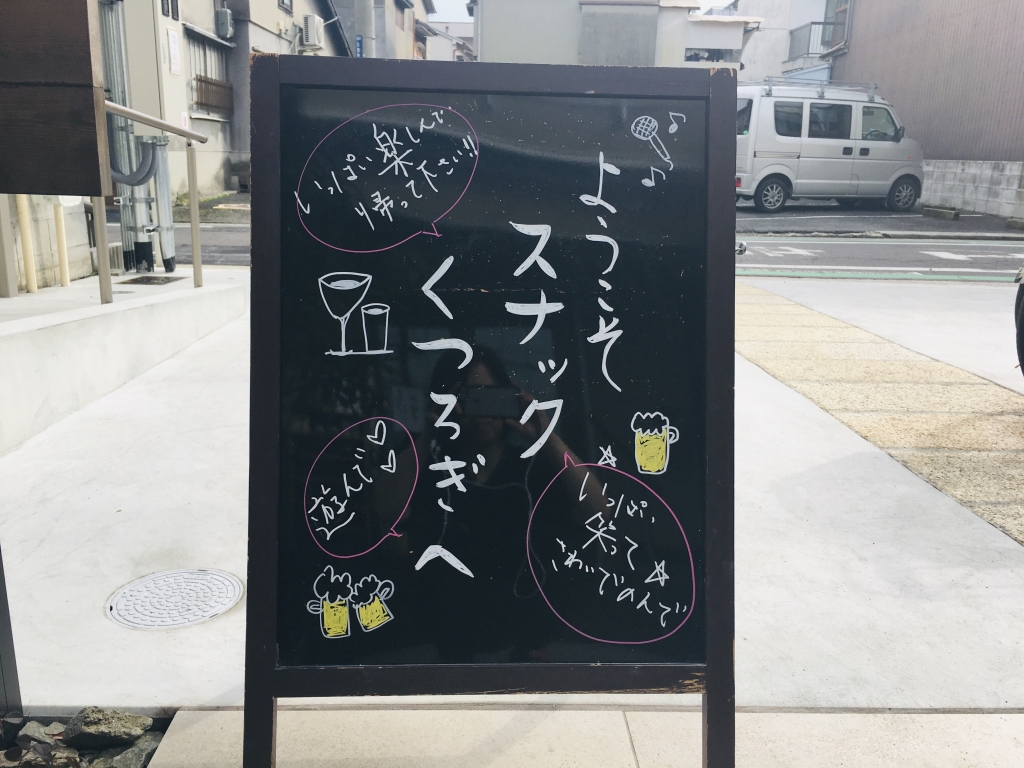 ようこそ
スナック
くつろぎへ
いっぱい楽しんで
帰って下さい!!
いっぱい
笑って
さわいでのんで
遊んで♡♡